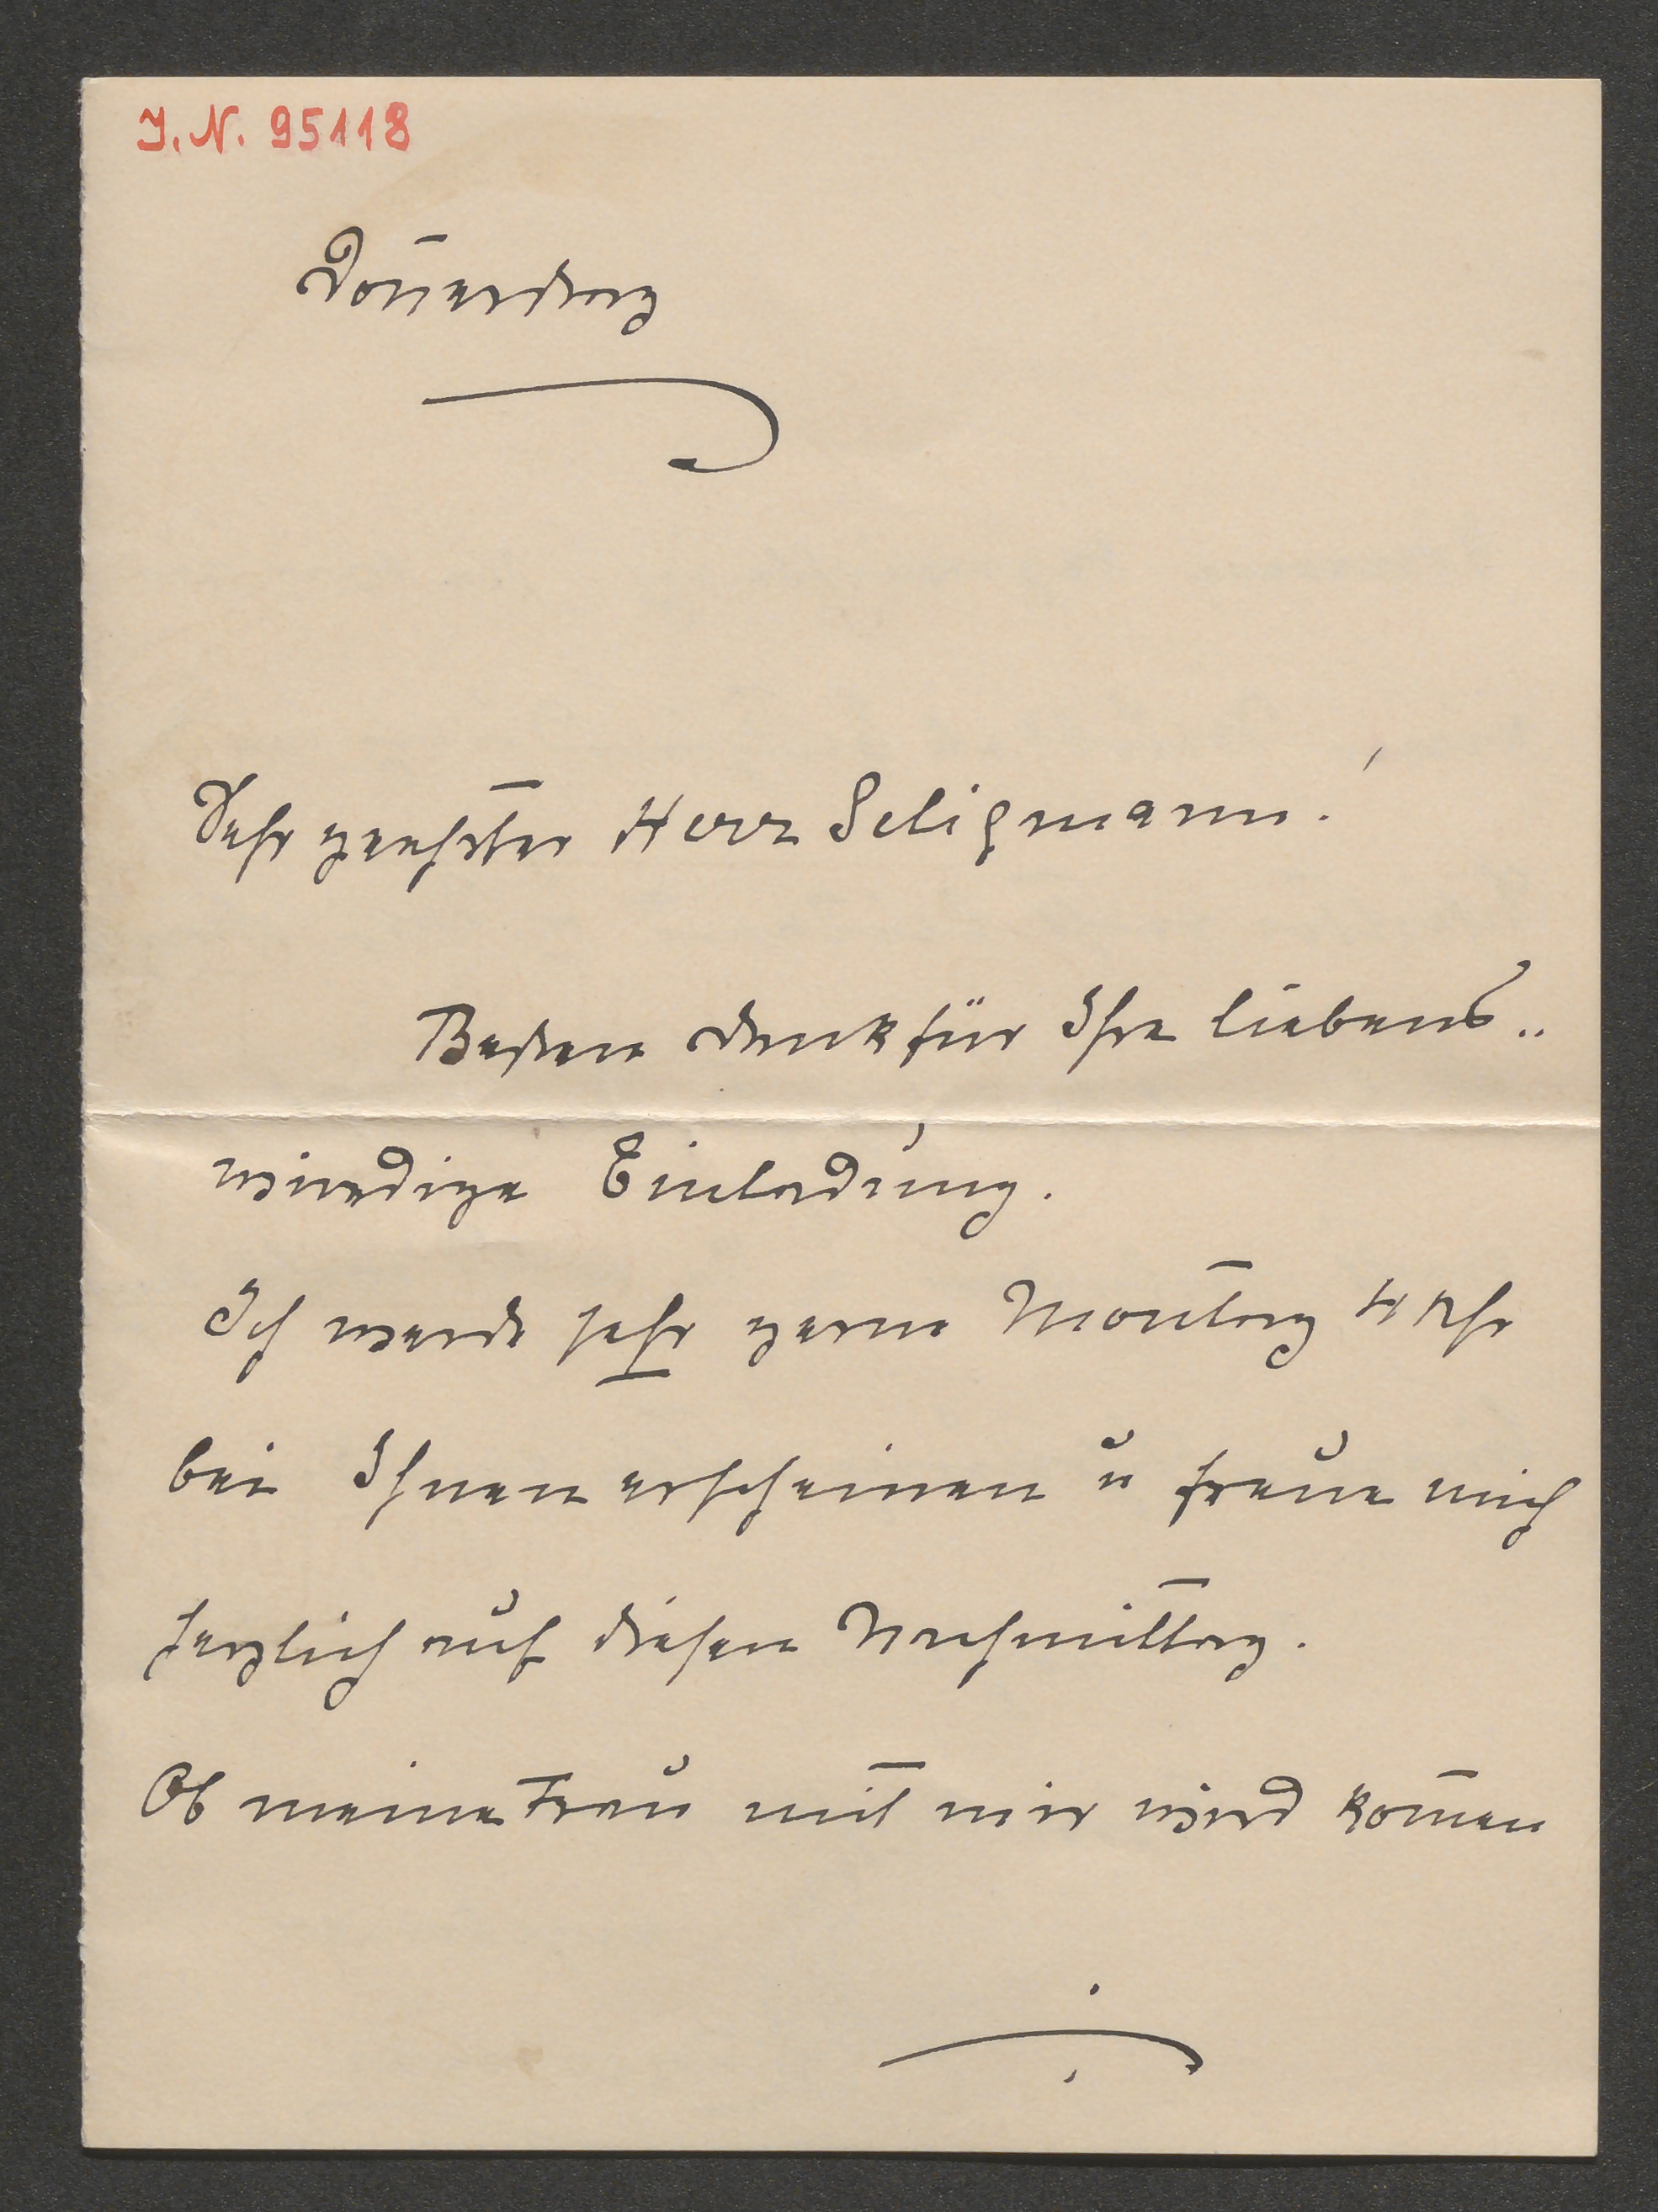 J. N. 95118
Don̄erstag
Sehr geehrter Herr Seligmann!
Besten Dank für Ihre liebens-
würdige Einladung.
Ich werde sehr gerne Montag 4 Uhr
bei Ihnen erscheinen u freue mich
herzlich auf diesen Nachmittag.
Ob meine Frau mit mir wird kom̄en